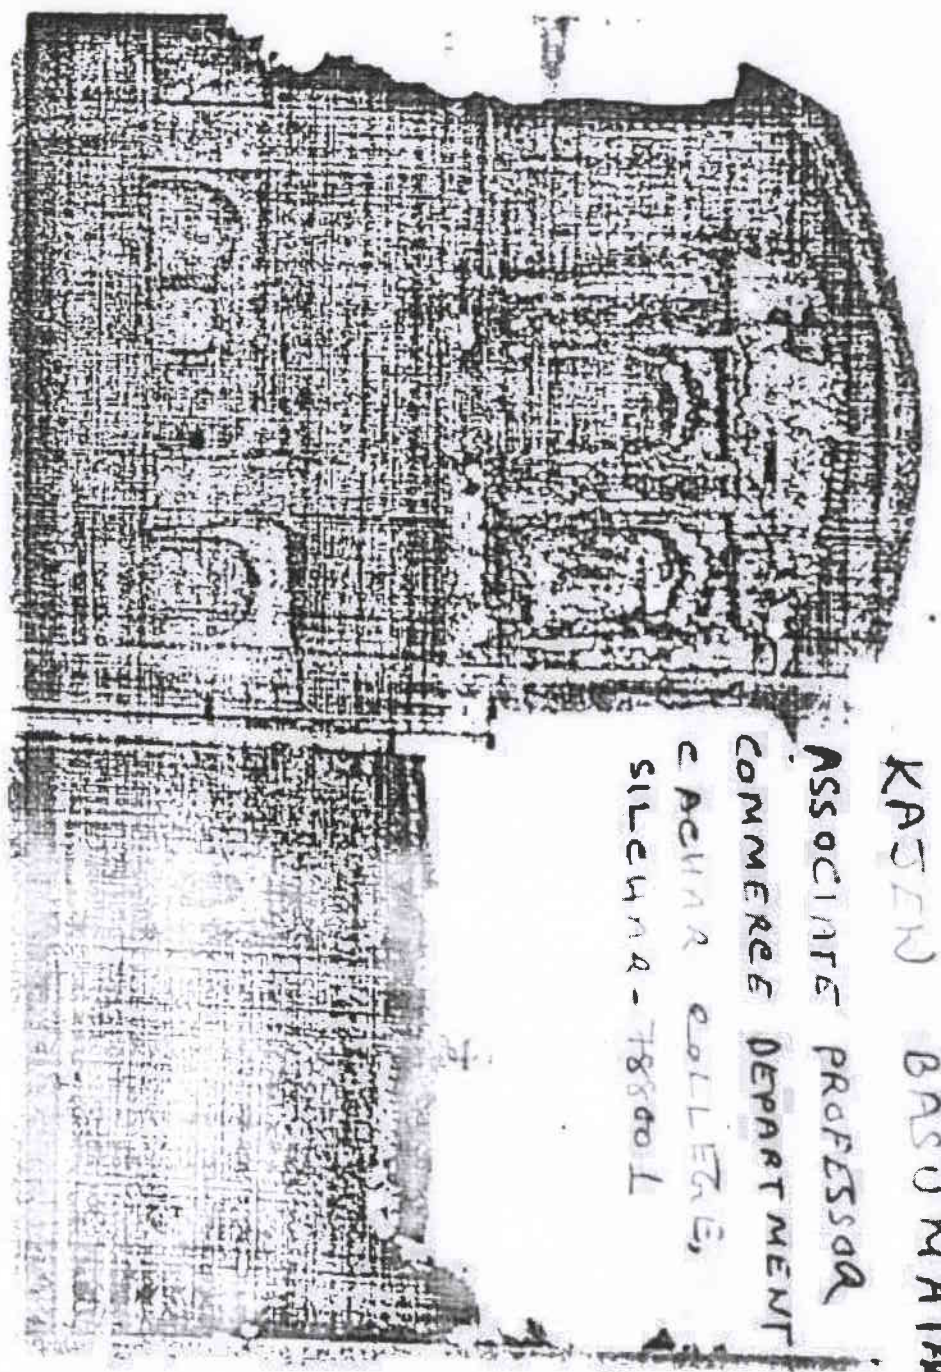 KAJEN BASUMATA
ASSOCIATE PROFESSOR
COMMERCE DEPARTMENT
CACHAR COLLEGE,
SILCHAR - 788001